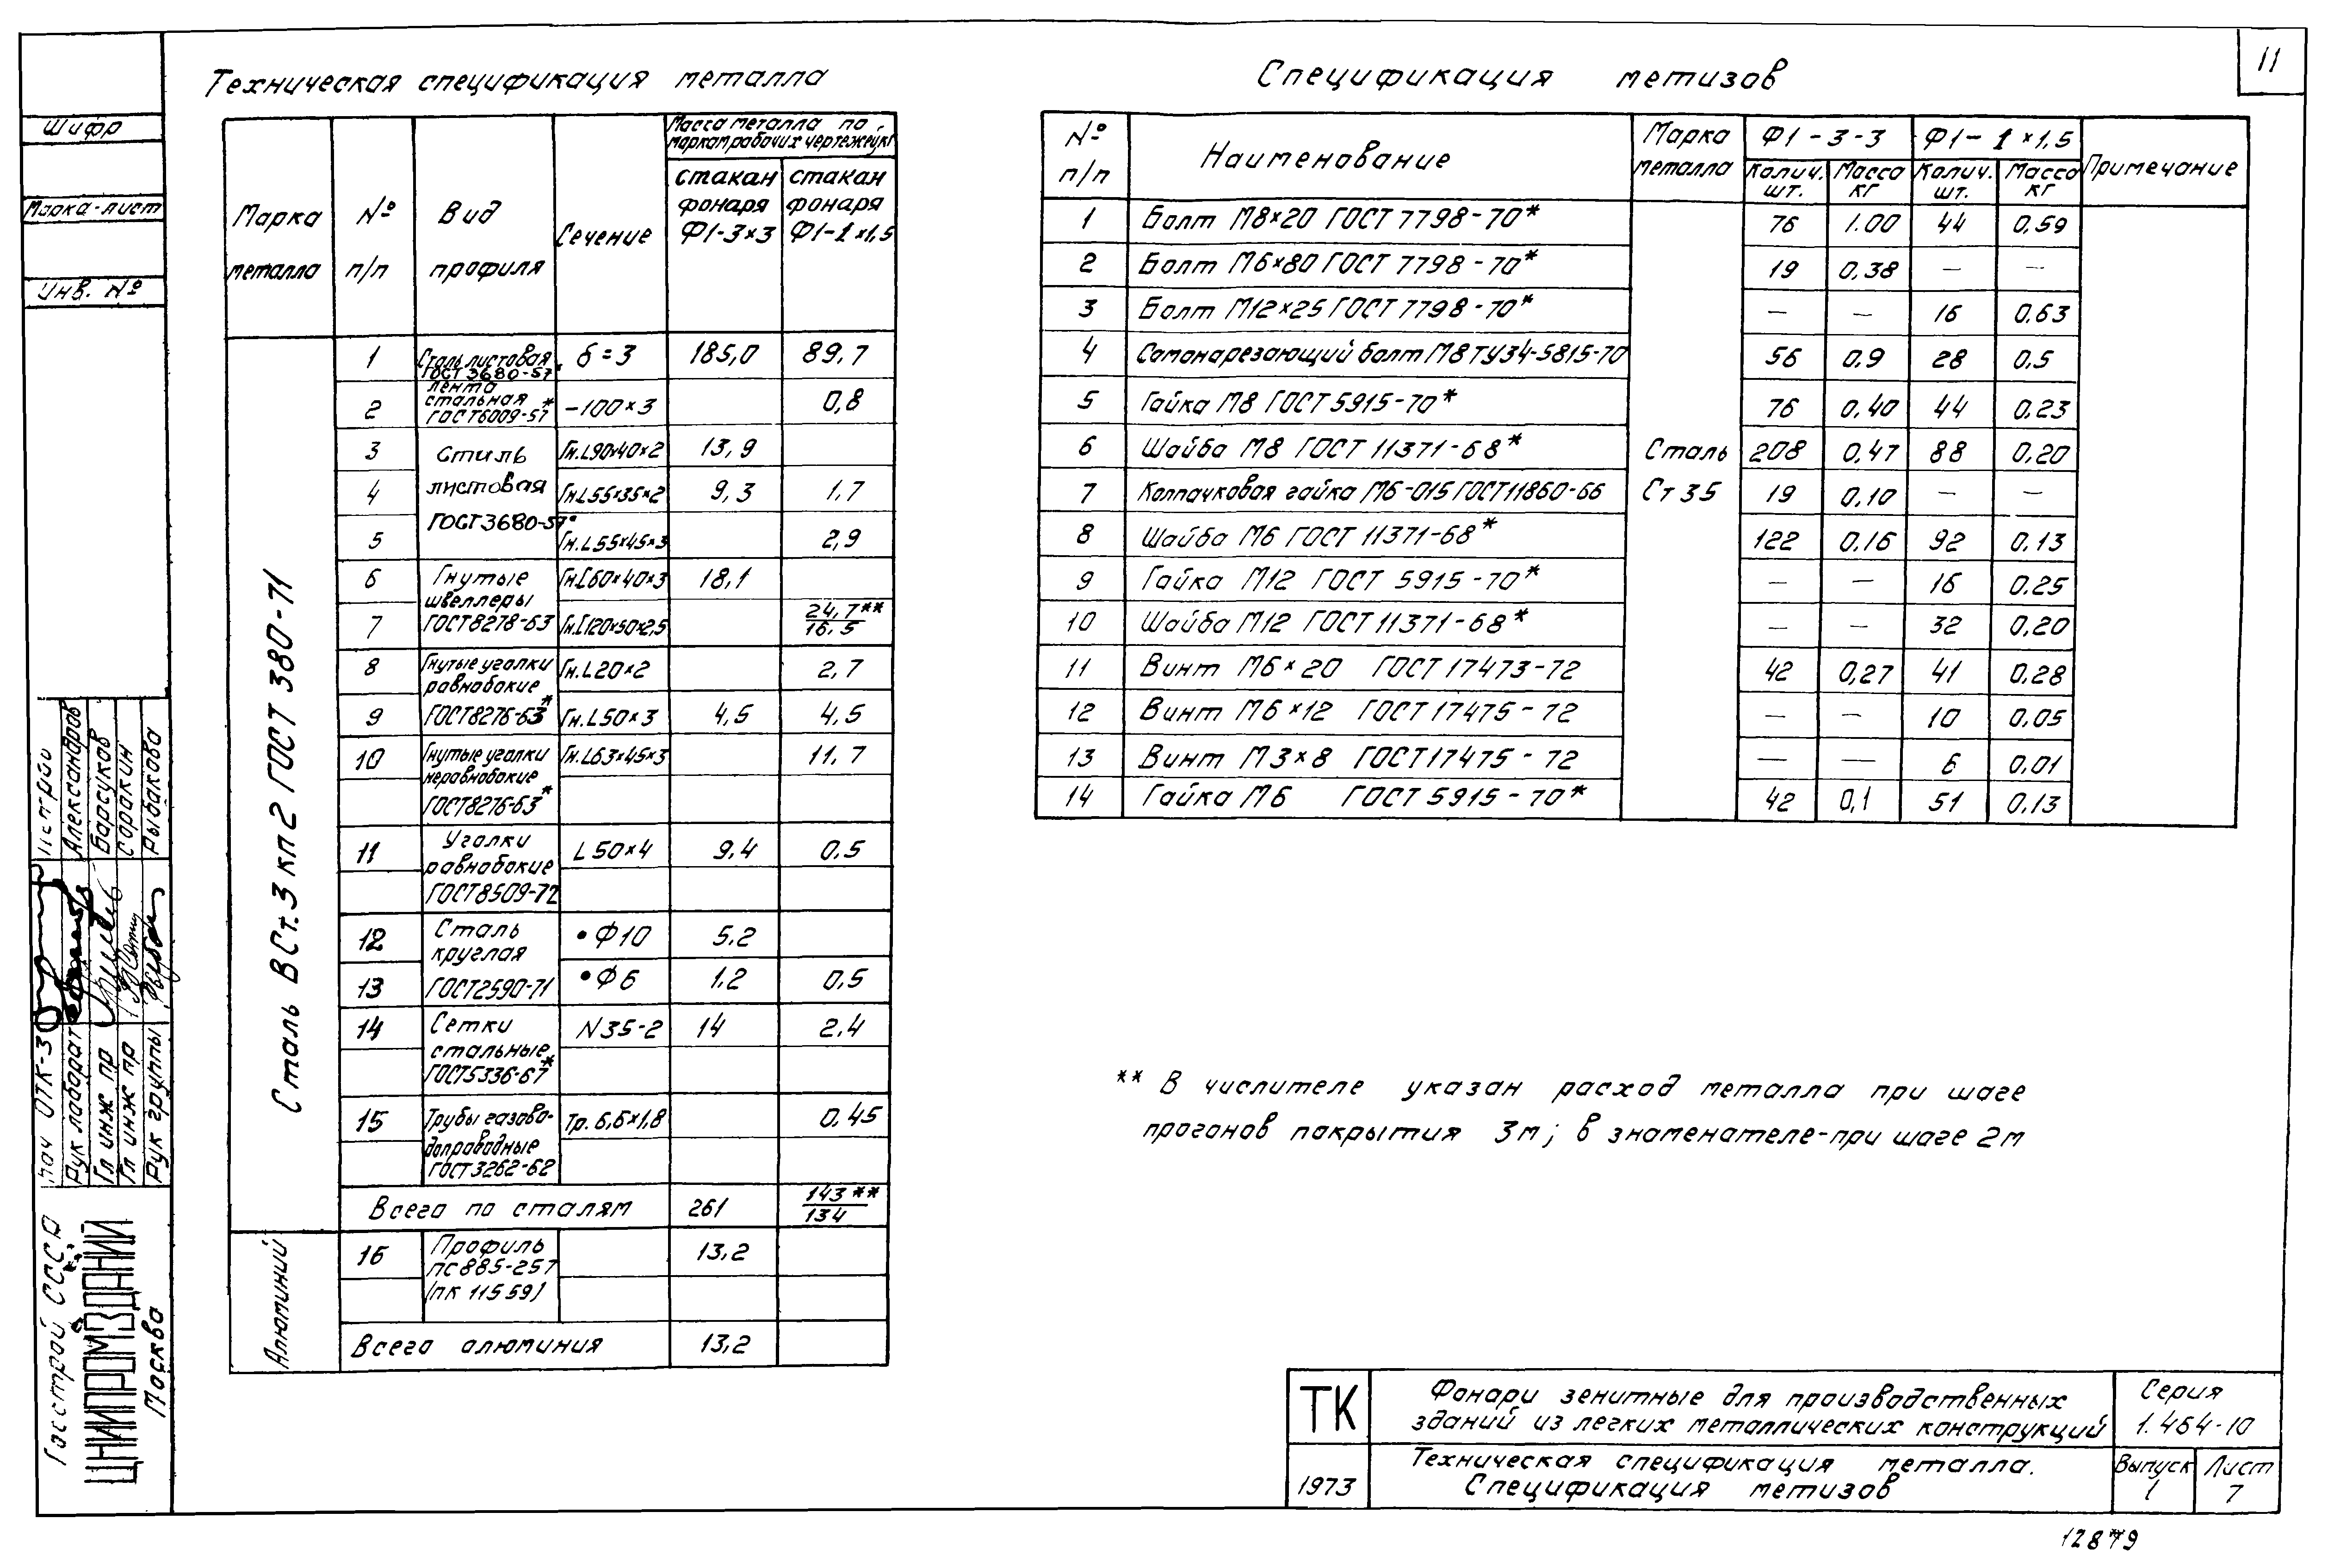 11
Техническая спецификация металла
Марка металла
№ п/п
Вид профиля
Сечение
Масса металла по
маркам рабочих чертежей, кг
стакан фонаря Ф1-3×3
стакан фонаря Ф1-1×1,5
Сталь ВСт.3 кп2 ГОСТ 380-71
1 Сталь листовая ГОСТ 3680-57* δ=3 185,0 89,7
2 лента стальная ГОСТ6009-57* -100×3 0,8
Сталь листовая ГОСТ3680-57*
3 Гн.L90×40×2 13,9
4 Гн.L55×35×2 9,3 1,7
5 Гн.L55×45×3 2,9
Гнутые швеллеры ГОСТ8278-63
6 Гн.[60×40×3 18,1
7 Гн.[120×50×2,5 24,7**/16,5
Гнутые уголки равнобокие ГОСТ8276-63*
8 Гн.L20×2 2,7
9 Гн.L50×3 4,5 4,5
10 Гнутые уголки неравнобокие ГОСТ8276-63* Гн.L63×45×3 11,7
11 Уголки равнобокие ГОСТ8509-72 L50×4 9,4 0,5
Сталь круглая ГОСТ2590-71
12 •Ф10 5,2
13 •Ф6 1,2 0,5
14 Сетки стальные ГОСТ5336-67* N35-2 14 2,4
15 Трубы газово-допроводные ГОСТ3262-62 Тр. 6,6×1,8 0,45
Всего по сталям 261 143**/134
Алюминий
16 Профиль ПС885-257 (ПК 11559) 13,2
Всего алюминия 13,2
Спецификация метизов
№ п/п
Наименование
Марка металла
Ф1-3-3
Ф1-1×1,5
Колич. шт.
Масса кг
Колич. шт.
Масса кг
Примечание
Сталь Ст 35
1 Болт М8×20 ГОСТ 7798-70* 76 1.00 44 0,59
2 Болт М6×80 ГОСТ 7798-70* 19 0,38 — —
3 Болт М12×25 ГОСТ 7798-70* — — 16 0,63
4 Самонарезающий болт М8 ТУ34-5815-70 56 0,9 28 0,5
5 Гайка М8 ГОСТ 5915-70* 76 0,40 44 0,23
6 Шайба М8 ГОСТ 11371-68* 208 0,47 88 0,20
7 Колпачковая гайка М6-015 ГОСТ11860-66 19 0,10 — —
8 Шайба М6 ГОСТ 11371-68* 122 0,16 92 0,13
9 Гайка М12 ГОСТ 5915-70* — — 16 0,25
10 Шайба М12 ГОСТ 11371-68* — — 32 0,20
11 Винт М6×20 ГОСТ 17473-72 42 0,27 41 0,28
12 Винт М6×12 ГОСТ 17475-72 — — 10 0,05
13 Винт М3×8 ГОСТ17475-72 — — 6 0,01
14 Гайка М6 ГОСТ 5915-70* 42 0,1 51 0,13
** В числителе указан расход металла при шаге
прогонов покрытия 3м; в знаменателе-при шаге 2м
ТК
1973
Фонари зенитные для производственных
зданий из легких металлических конструкций
Серия
1.464-10
Техническая спецификация металла.
Спецификация метизов
Выпуск
1
Лист
7
12879
Шифр
Марка-лист
Инв. №
Нач ОТК-3
Рук лаборат Александров
Гл инж пр Барсуков
Гл инж пр Сорокин
Рук группы Рыбакова
Госстрой СССР
ЦНИИПРОМЗДАНИЙ
Москва